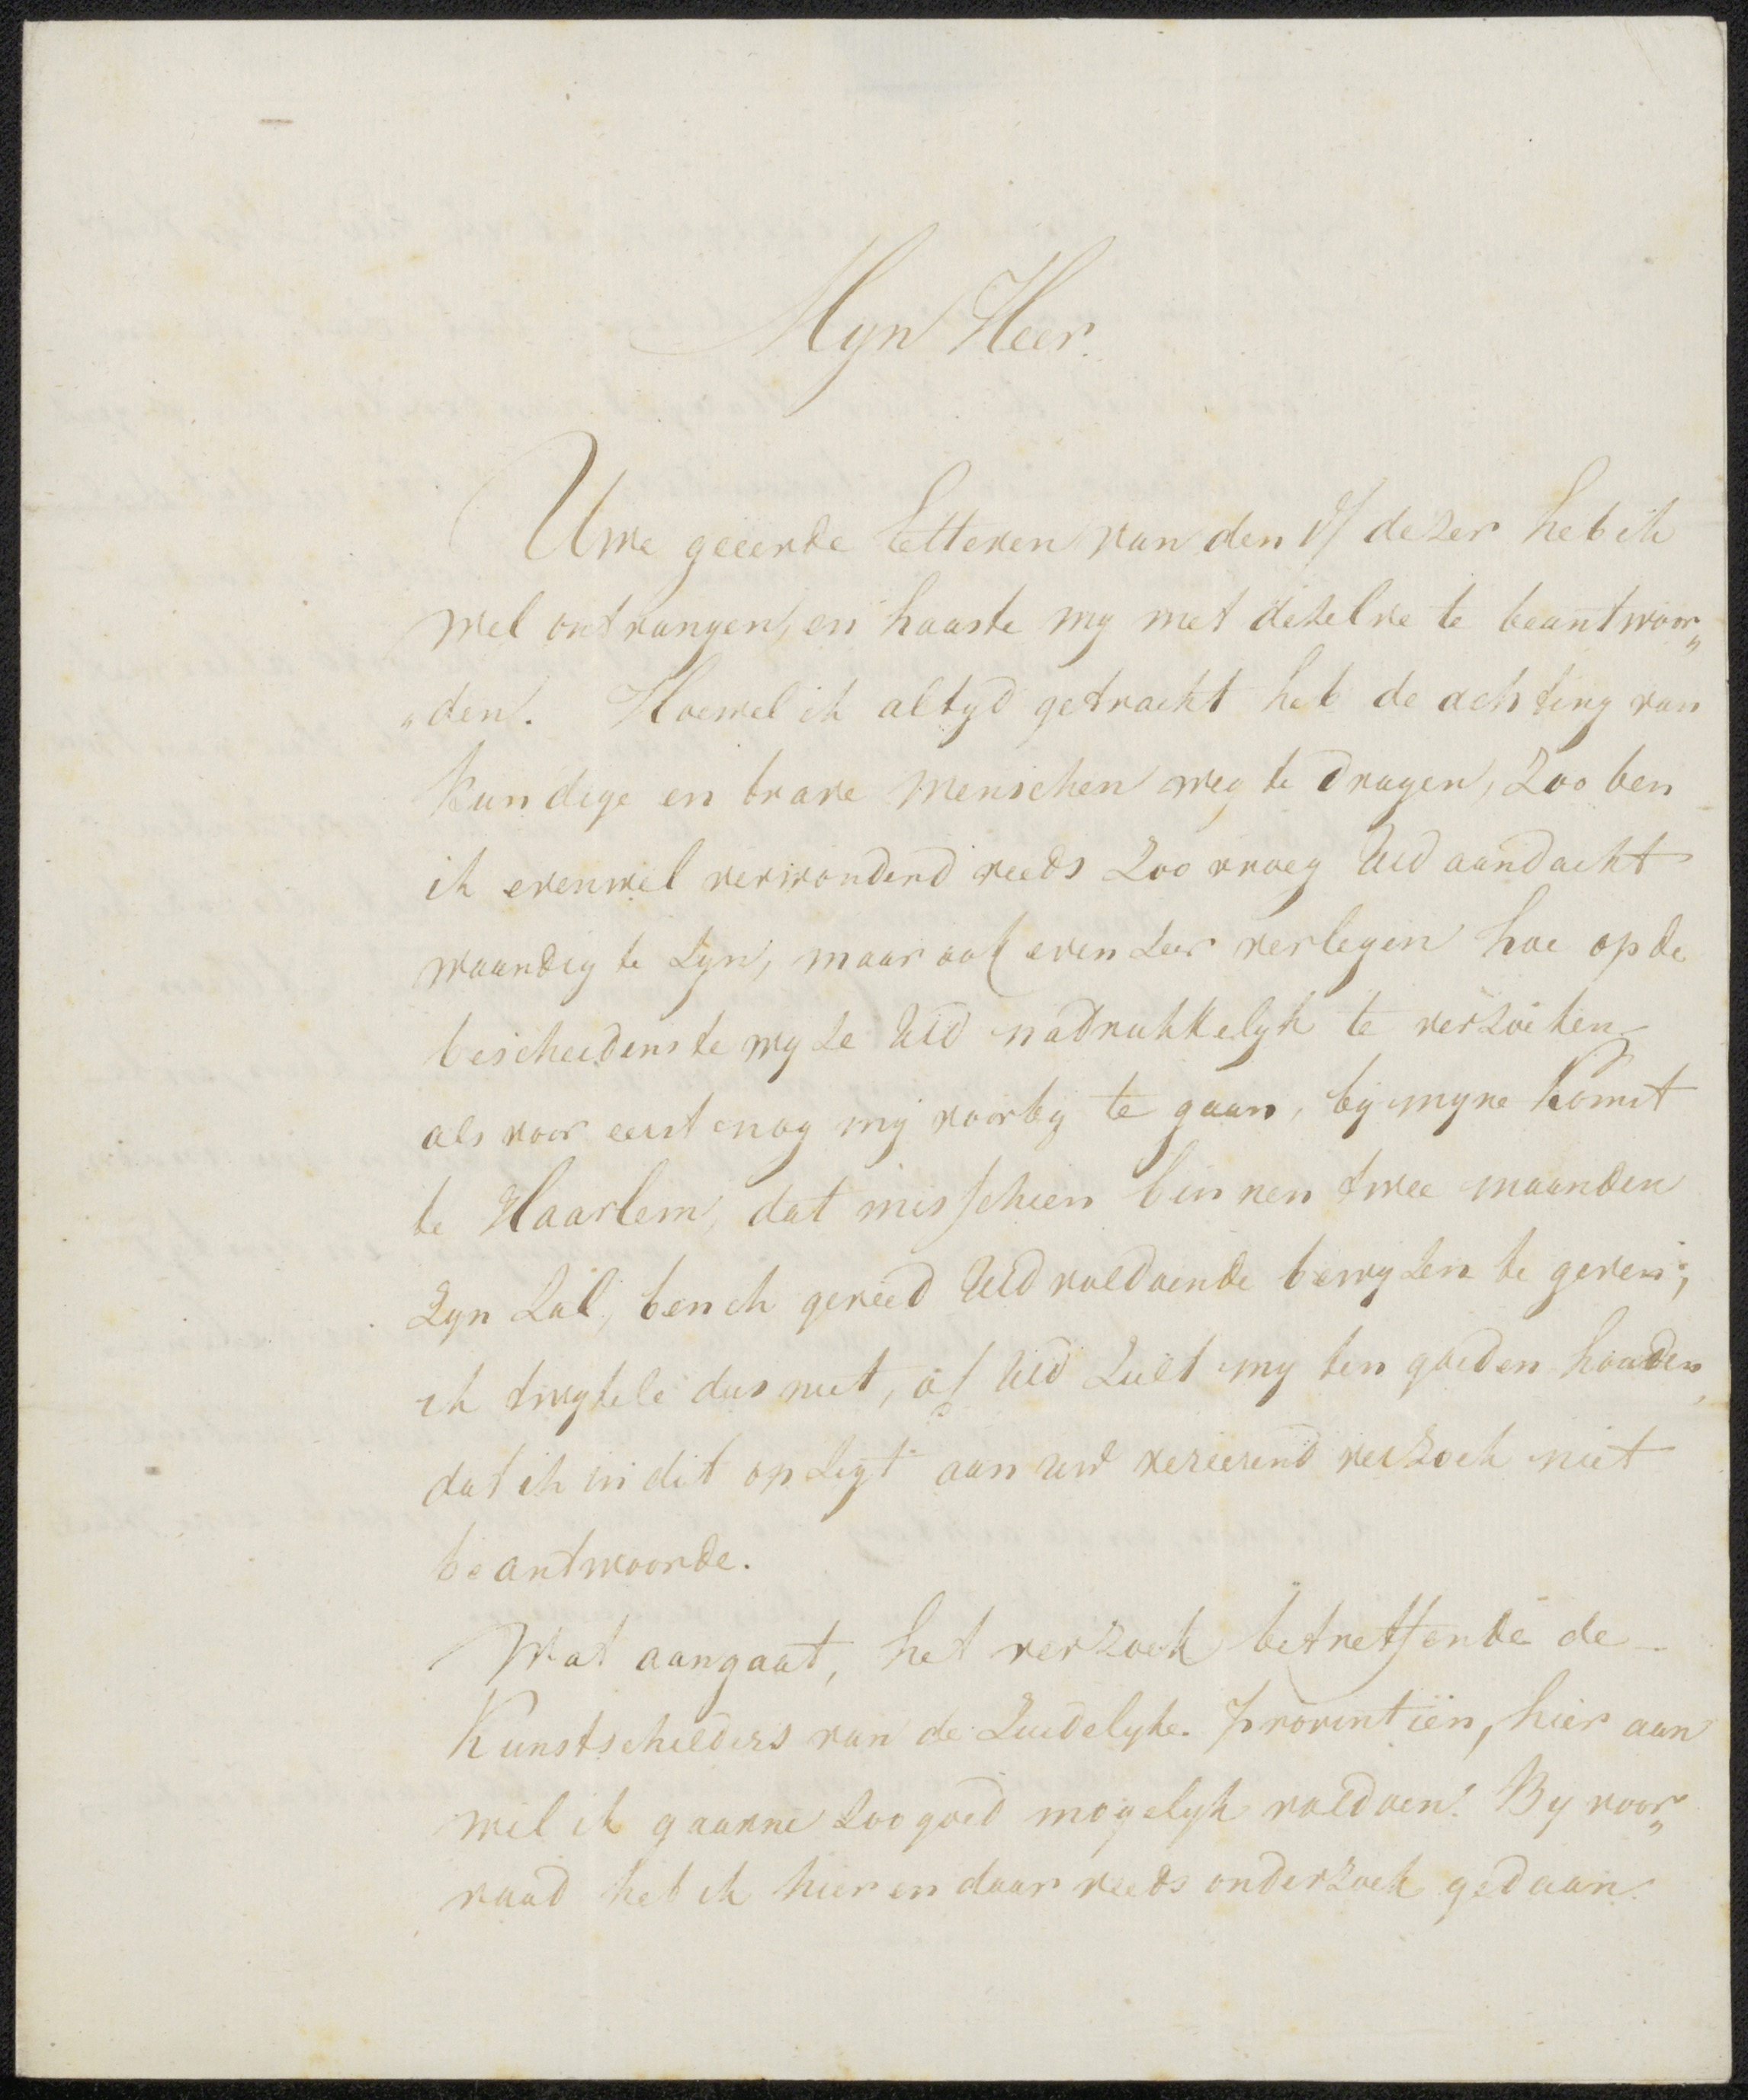 Myn Heer.
Uwe geëerde letteren van den dezer heb ik
wel ontvangen, en haaste my met dezelve te beantwoor„
„den. Hoewel ik altyd getracht heb de achting van
kundige en brave menschen weg te dragen, zoo ben
ik evenwel verwonderd reeds zoo vroeg UEd aandacht
waardig te zyn, maar ook even zeer verlegen hoe op de
bescheidenste wyze UEd nadrukkelyk te verzoeken
als voor eerst nog my voorby te gaan, by myne komst
te Haarlem, dat misschien binnen twee maanden
zyn zal, ben ik gereed UEd voldoende bewyzen te geven;
ik twyfele dus niet, of UEd zult my ten goeden houden,
dat ik in dit opzigt aan uw vereerend verzoek niet
beantwoorde.
Wat aangaat, het verzoek betreffende de
Kunstschilders van de Zuidelyke Provintiën, hier aan
wil ik gaarne zoo goed mogelyk voldoen. By voor„
raad heb ik hier en daar reeds onderzoek gedaan.